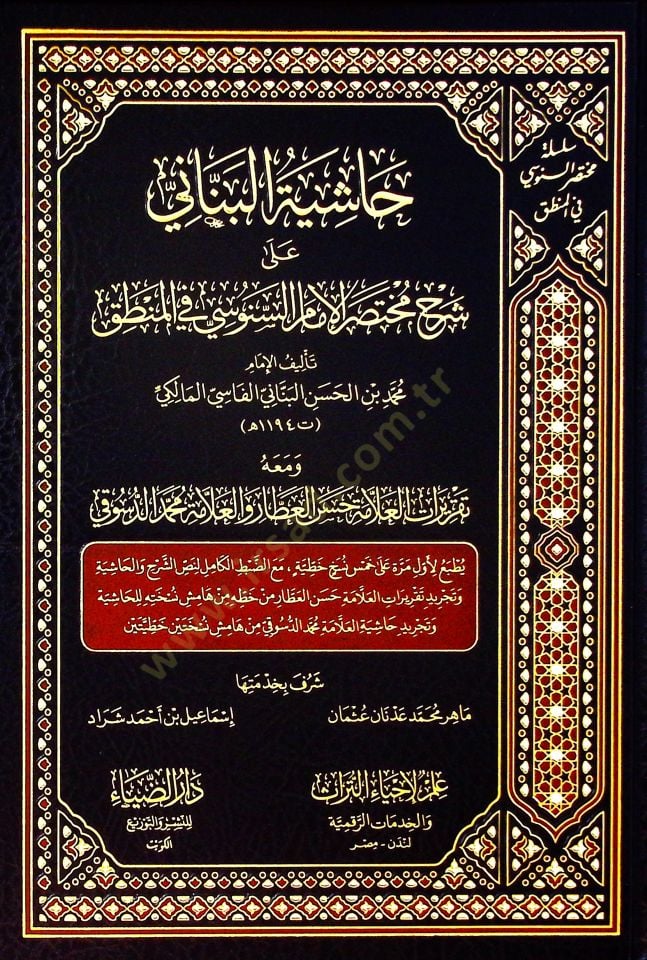 سلسلة
مختصر السنوسي
في المنطق
حَاشِيَةُ البَنَّانِيِّ
عَلَى
شَرْحِ مُخْتَصَرِ الإِمَامِ السَّنُوسِيِّ فِي المَنْطِقِ
تَأْلِيفُ الإِمَامِ
مُحَمَّدِ بْنِ الحَسَنِ البَنَّانِيِّ الفَاسِيِّ المَالِكِيِّ
(ت ١١٩٤هـ)
وَمَعَهُ
تَقْرِيرَاتُ العَلَّامَةِ حَسَنٍ العَطَّارِ وَالعَلَّامَةِ مُحَمَّدٍ الدُّسُوقِيِّ
يُطْبَعُ لِأَوَّلِ مَرَّةٍ عَلَى خَمْسِ نُسَخٍ خَطِّيَّةٍ ، مَعَ الضَّبْطِ الكَامِلِ لِنَصِّ الشَّرْحِ وَالحَاشِيَةِ
وَتَجْرِيدِ تَقْرِيرَاتِ العَلَّامَةِ حَسَنٍ العَطَّارِ مِنْ خَطِّهِ مِنْ هَامِشِ نُسْخَتِهِ لِلحَاشِيَةِ
وَتَجْرِيدِ حَاشِيَةِ العَلَّامَةِ مُحَمَّدٍ الدُّسُوقِيِّ مِنْ هَامِشِ نُسْخَتَيْنِ خَطِّيَّتَيْنِ
شَرُفَ بِخِدْمَتِهَا
مَاهِر مُحَمَّد عَدْنَان عُثْمَان
إِسْمَاعِيل بْن أَحْمَد شَرَاد
عِلْم لِإِحْيَاءِ التُّرَاثِ
وَالخَدَمَاتِ الرَّقْمِيَّةِ
لَنْدَن - مِصْر
دَارُ الضِّيَاءِ
لِلنَّشْرِ وَالتَّوْزِيعِ
الكُوَيْت